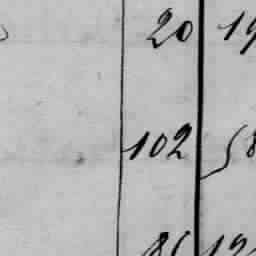 20 19
102 58
86 19